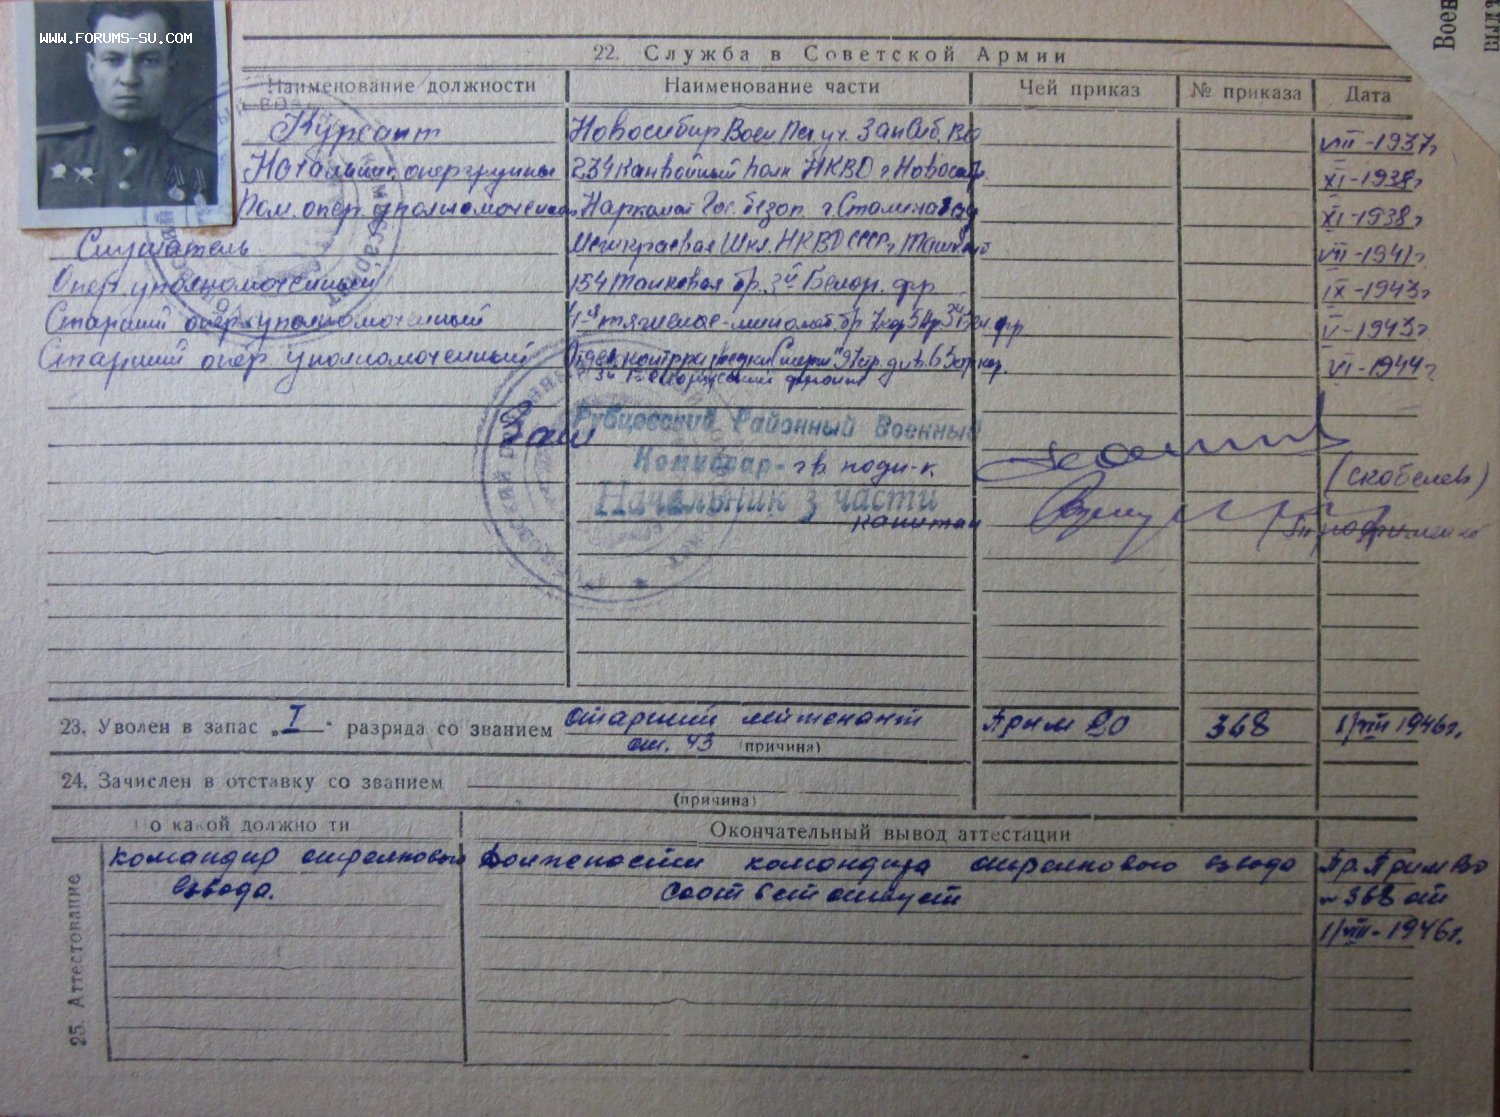 WWW.FORUMS-SU.COM
Воен
22. Служба в Советской Армии
Наименование должности Наименование части Чей приказ № приказа Дата
Курсант Новосибир Воен Пех уч. ЗапСиб ВО VIII-1937г
Начальник опергруппы 234 Канвойный полк НКВД г. Новосиб. XI-1938г
Пом. опер. уполномоченного Наркомат Гос. безоп. г. Сталинабад XI-1938г
Слушатель Межкраевая Шкл. НКВД СССР г. Ташкент VII-1941г
Опер. уполномоченный 154 танковая бр. 3й Белор. фр IX-1943г
Старший опер уполномоченный V-1943г
Старший опер уполномоченный Отдел контрразведки "Смерш" VI-1944г
3й Белорусский фронт
Рубцовский Районный Военный
Комиссар - гв. подп-к. (Скобелев)
Начальник 3 части
капитан
23. Уволен в запас „I“ разряда со званием старший лейтенант Прим ВО 368 1/VIII 1946г.
ст. 43 (причина)
24. Зачислен в отставку со званием
(причина)
По какой должности Окончательный вывод аттестации
25. Аттестование
командир стрелкового Должности командира стрелкового взвода Пр. ПримВО
взвода. соответствует № 368 от
1/VIII-1946г.